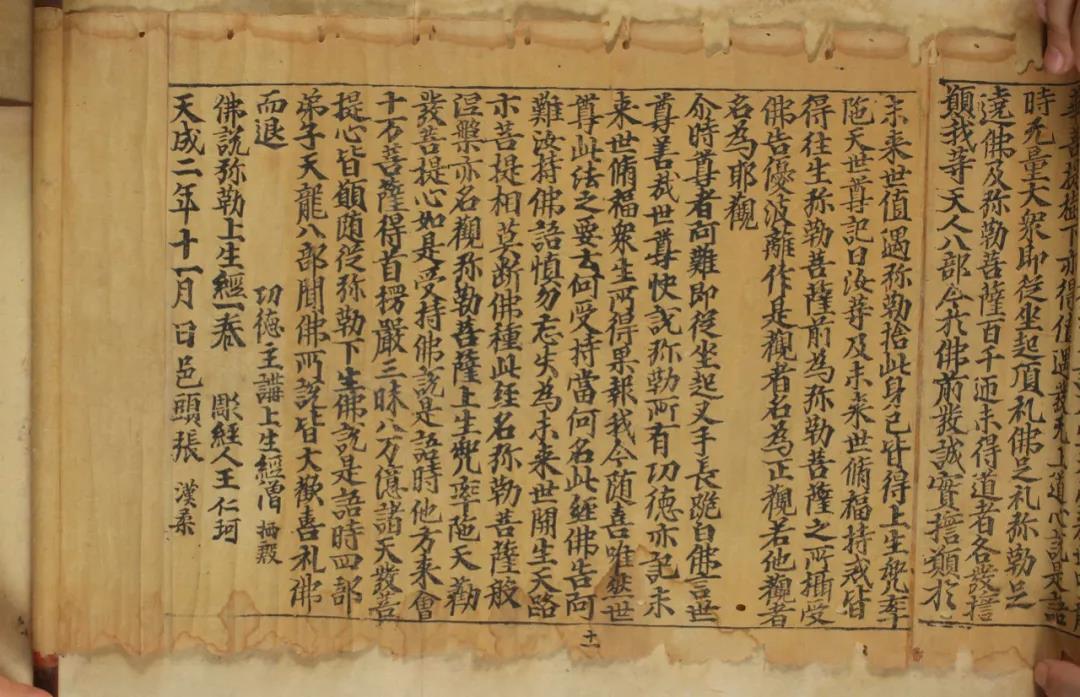 菩提樹下亦得值遇發无上道心說是語
時无量大衆即從坐起頂礼佛足礼弥勒足
遶佛及弥勒菩薩百千迊未得道者各發擔
願我等天人八部今於佛前發誠實擔願於
未来世值遇弥勒捨此身已皆得上生兜率
陁天世尊記曰汝等及未来世脩福持戒皆
得往生弥勒菩薩前為弥勒菩薩之所攝受
佛告優波離作是觀者名為正觀若他觀者
名為耶觀
尒時尊者阿難即從坐起叉手長跪白佛言世
尊善哉世尊快說弥勒所有功德亦記未
来世脩福衆生所得果報我今随喜唯然世
尊此法之要云何受持當何名此經佛告阿
難汝持佛語慎勿忘失為未来世開生天路
示菩提相莫断佛種此經名弥勒菩薩般
涅槃亦名觀弥勒菩薩上生兜率陁天勸
發菩提心如是受持佛說是語時他方来會
十万菩薩得首楞嚴三昧八万億諸天發菩
提心皆願随從弥勒下生佛說是語時四部
弟子天龍八部聞佛所說皆大歡喜礼佛
而退 功德主講上生經僧 栖殷
佛說弥勒上生經一卷 彫經人王仁珂
天成二年十一月日邑頭張 漢柔
十一